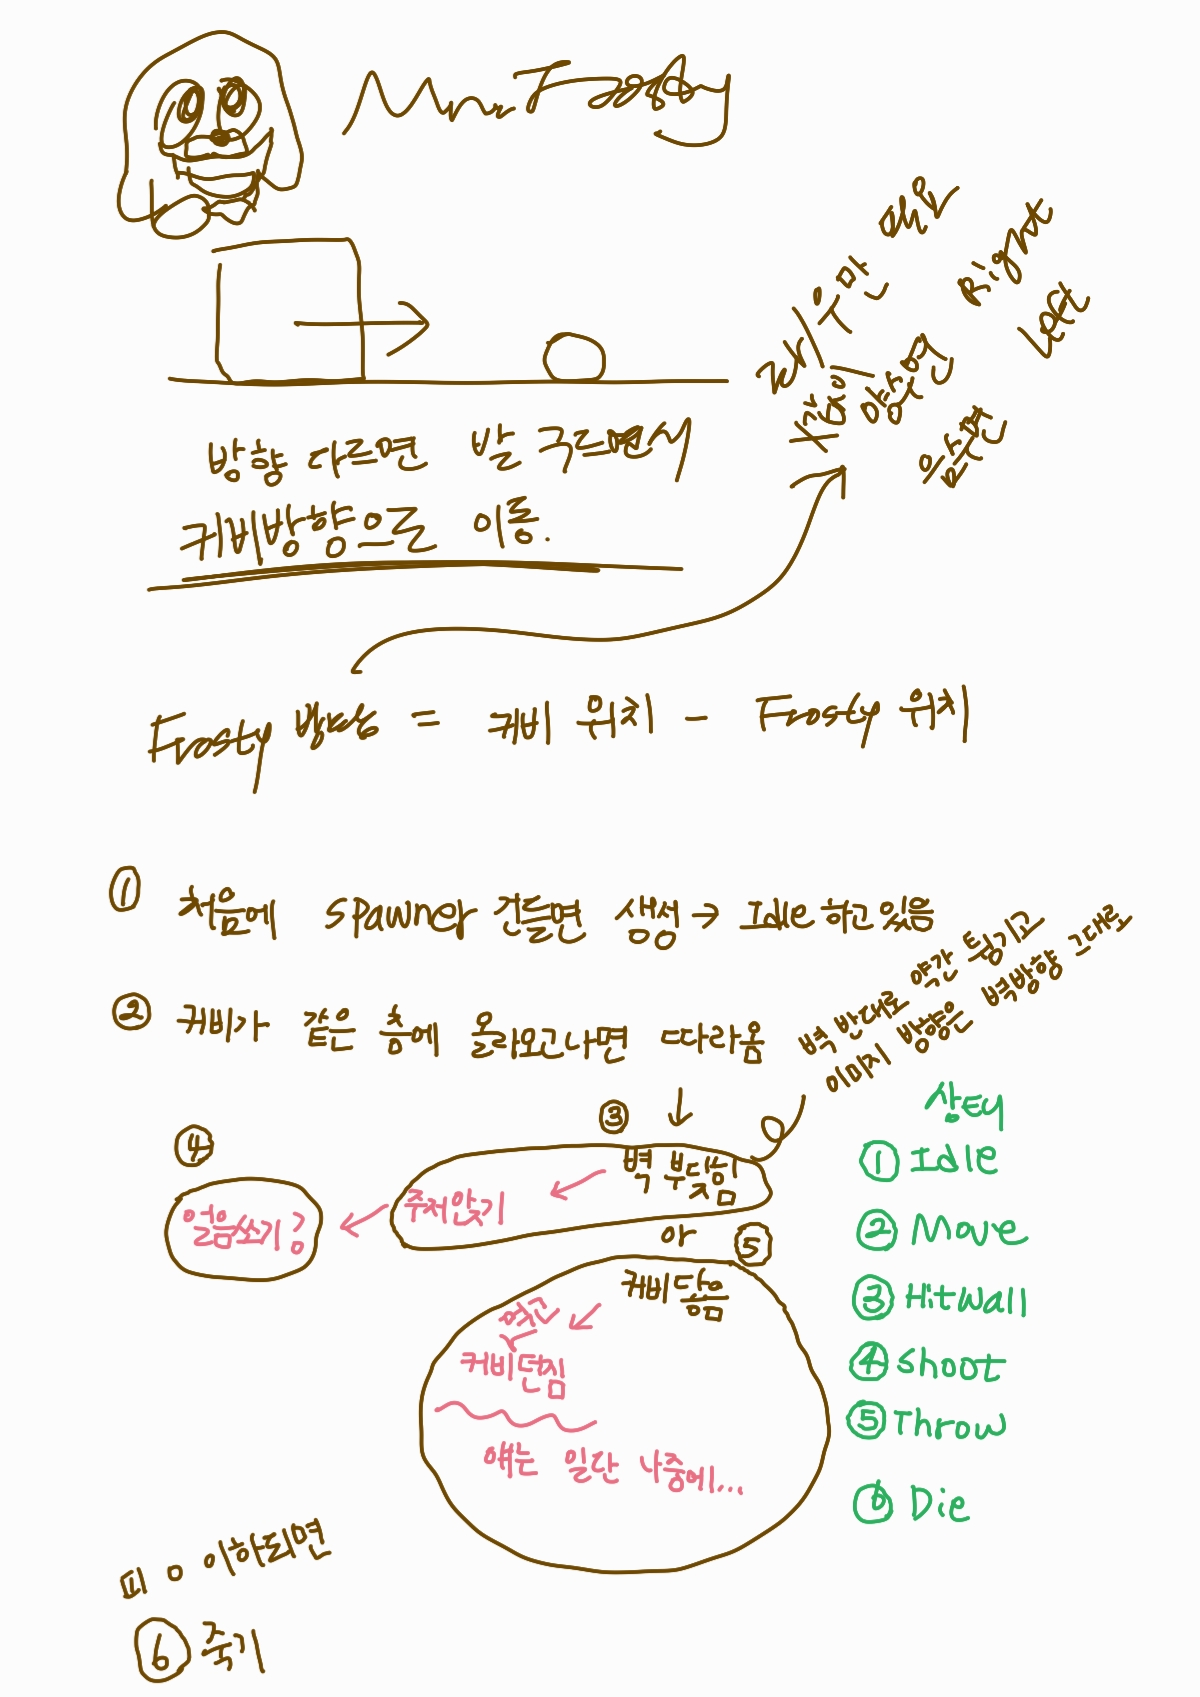 Mr. Frosty
좌/우만 필요
X값이 양수면 Right
음수면 Left
방향 다르면 발 구르면서
커비방향으로 이동.
Frosty 방향 = 커비 위치 - Frosty 위치
① 처음에 spawner 건들면 생성 → Idle 하고 있음
② 커비가 같은 층에 올라오고나면 따라옴
벽 반대로 약간 튕기고
이미지 방향은 벽방향 그대로
③ 벽 부딪힘
주저앉기
④ 얼음쏘기
아
⑤ 커비닿음
업고
커비던짐
얘는 일단 나중에...
상태
① Idle
② Move
③ Hitwall
④ shoot
⑤ Throw
⑥ Die
피 0 이하되면
⑥ 죽기